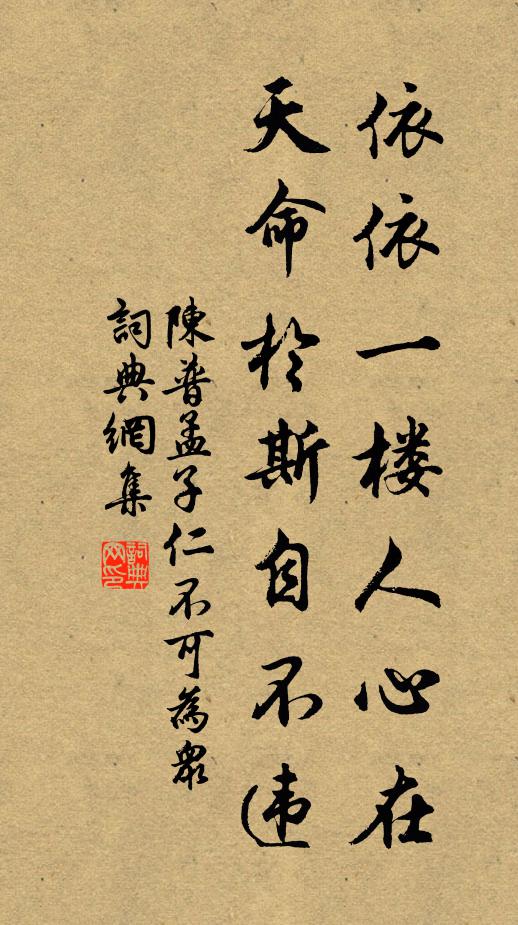 依依一楼人心在
天命於斯自不违
陳普孟子仁不可為衆
詞典網集
詞典
网印